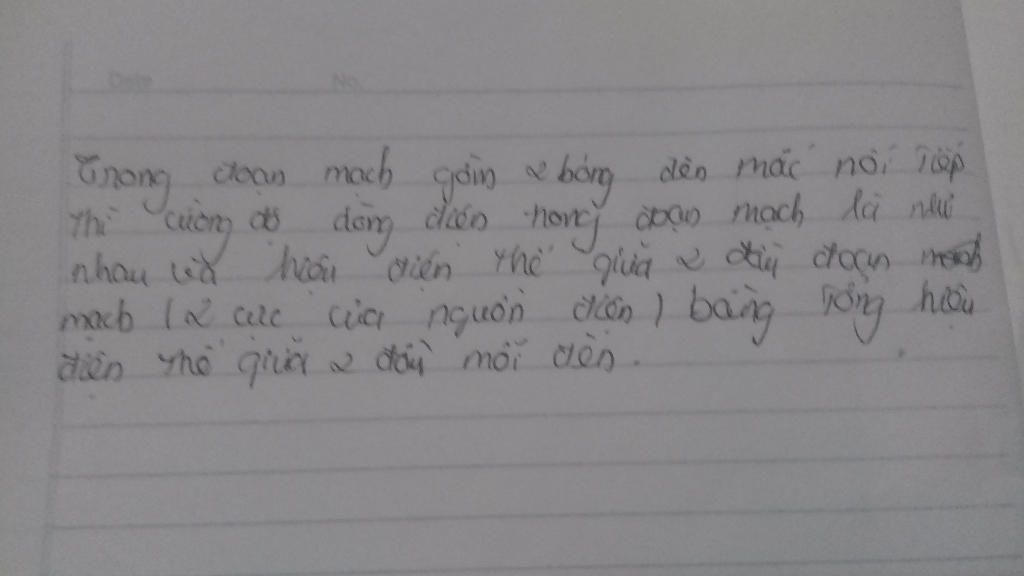 Date No.
Trong đoạn mạch gồm 2 bóng đèn mắc nối tiếp
thì cường độ dòng điện trong đoạn mạch là như
nhau và hiệu điện thế giữa 2 đầu đoạn
mạch (2 cực của nguồn điện) bằng tổng hiệu
điện thế giữa 2 đầu mỗi đèn.